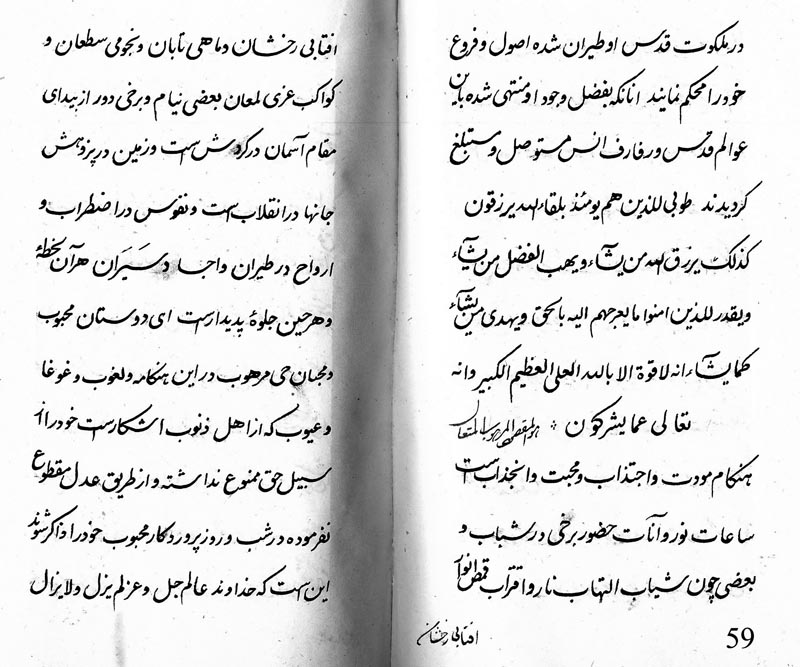 در ملکوت قدس او طیران شده اصول و فروع
خود را محکم نمایند انانکه بفضل وجود او منتهی شده باین
عوالم قدس و رفارف انس مستوصل و مستبلغ
گردیدند طوبی للذین هم یومئذ بلقاء الله یرزقون
کذلک یرزق الله من یشاء و یهب الفضل من یشاء
و یقدر للذین امنوا ما یعرجهم الیه بالحق و یهدی من یشاء
کما یشاء انه لا قوة الا بالله العلی العظیم الکبیر وانه
تعالی عما یشرکون
هنکام مودت و اجتذاب و محبت و انجذاب است
ساعات نور و آنات حضور برخی در شباب و
بعضی چون شیاب التهاب نار و اقتراب قمص انوار
افتابی رخشان
59
افتابی رخشان و ماهی تابان و نجومی سطعان و
کواکب عزی لمعان بعضی نیام و برخی دور از بیدای
مقام آسمان در کردش است و زمین در پژوهش
جانها در انقلاب است و نفوس در اضطراب و
ارواح در طیران و اجساد در سیران هر آن لحظهٔ
و هر حین جلوهٔ پدیدار است ای دوستان محبوب
و محبان حی مرهوب در این هنکامه و لغوب و غوغا
و عیوب که از اهل ذنوب اشکار است خود را از
سبیل حق ممنوع نداشته و از طریق عدل مقطوع
نفرموده در شب و روز پروردکار محبوب خود را ذاکر شوند
این است که خداوند عالم جل و عز لم یزل و لایزال